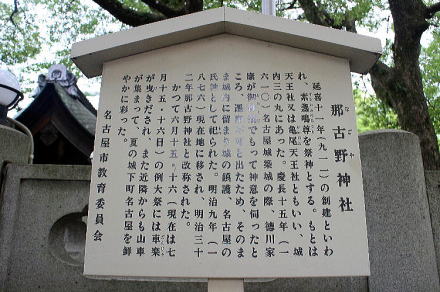 那古野神社
なごや
延喜十一年(九一一)の創建といわ
れ、素盞嗚尊を祭神とする。もとは
天王社又は亀尾天王社ともいい、城
内三の丸にあった。慶長十五年(一
六一〇)名古屋城築城の際、徳川家
康が御
でもって神意を伺ったと
ころ、遷座不可と出たため、そのま
ま城内に留まり城の鎮護、名古屋の
氏神として祀られた。明治九年(一
八七六)現在地に移され、明治三十
二年那古野神社と改称された。
かつて六月十五・十六(現在は七
月十五・十六日)の例大祭には車楽
が曳きだされ、また近隣からも山車
が集まって、夏の城下町名古屋を鮮
やかに彩った。
名古屋市教育委員会